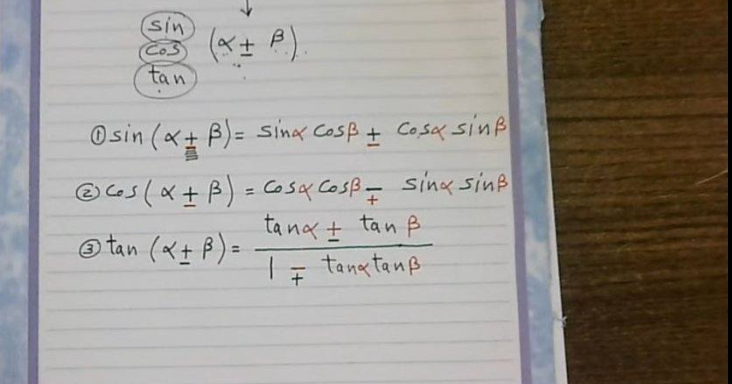 sin
cos (α ± β).
tan
① sin (α ± β) = sinα cosβ ± cosα sinβ
② cos (α ± β) = cosα cosβ ∓ sinα sinβ
③ tan (α ± β) = tanα ± tan β
1 ∓ tanα tanβ